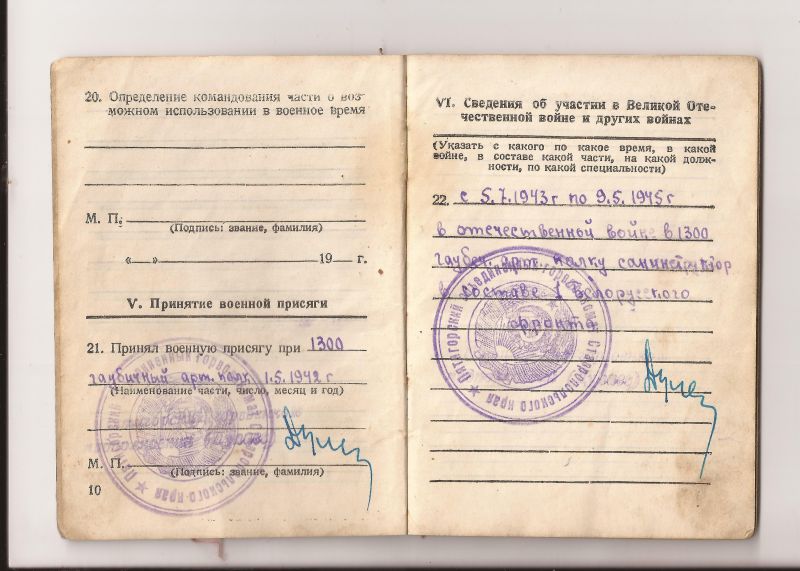 20. Определение командования части о воз-
можном использовании в военное время
М. П.
(Подпись: звание, фамилия)
«—» 19 г.
V. Принятие военной присяги
21. Принял военную присягу при 1300
гаубичный арт. полк 1.5.1942 г
(Наименование части, число, месяц и год)
М. П.
(Подпись: звание, фамилия)
10
VI. Сведения об участии в Великой Оте-
чественной войне и других войнах
(Указать с какого по какое время, в какой
войне, в составе какой части, на какой долж-
ности, по какой специальности)
22. с 5.7.1943 г по 9.5.1945 г
в отечественной войне в 1300
гаубич. арт. полку санинструктор
в составе Белорусского
фронта
Пятигорский объединенный городской Ставропольского края